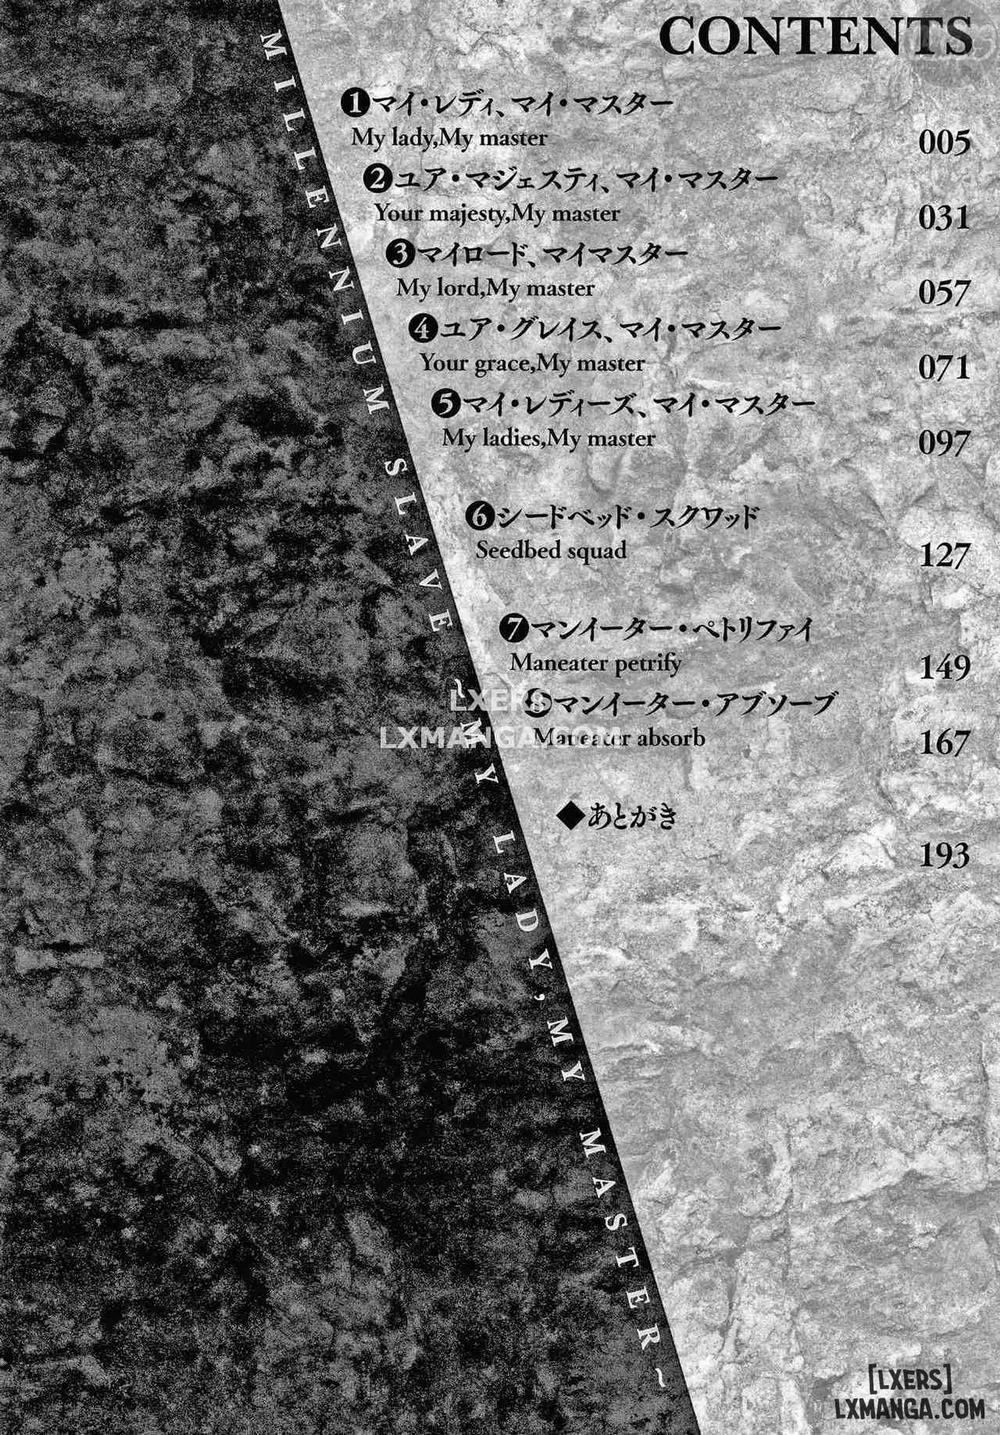 CONTENTS
❶マイ・レディ、マイ・マスター
My lady,My master
005
❷ユア・マジェスティ、マイ・マスター
Your majesty,My master
031
❸マイロード、マイマスター
My lord,My master
057
❹ユア・グレイス、マイ・マスター
Your grace,My master
071
❺マイ・レディーズ、マイ・マスター
My ladies,My master
097
❻シードベッド・スクワッド
Seedbed squad
127
❼マンイーター・ペトリファイ
Maneater petrify
149
❽マンイーター・アブソーブ
Maneater absorb
167
◆あとがき
193
MILLENNIUM SLAVE ~MY LADY,MY MASTER~
LXERS
LXMANGA.com
[LXERS]
LXMANGA.COM